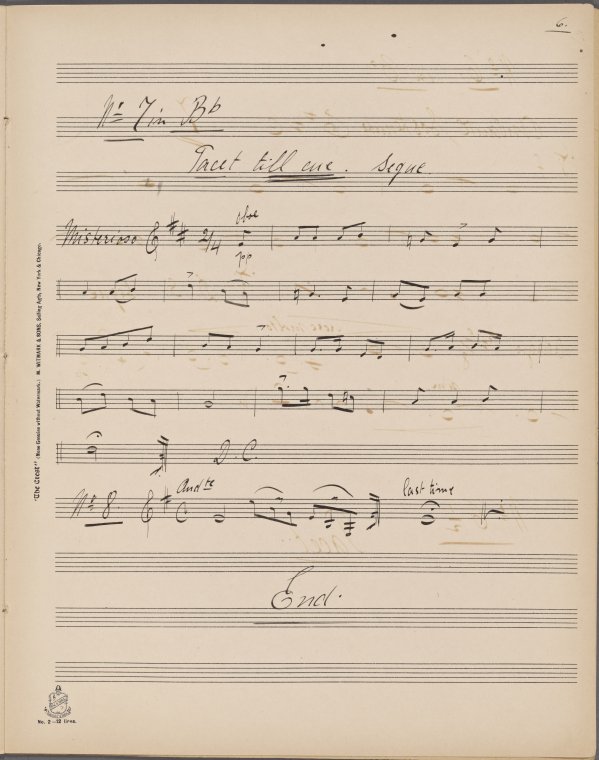 6.
No 7 in Bb
Tacet till cue. Segue.
Misterioso 2/4 oboe
pp
D.C.
No 8. Andte last time
End.
"The Crest" (None Genuine without Watermark.) M. WITMARK & SONS, Selling Agts, New York & Chicago.
No. 2—12 lines.